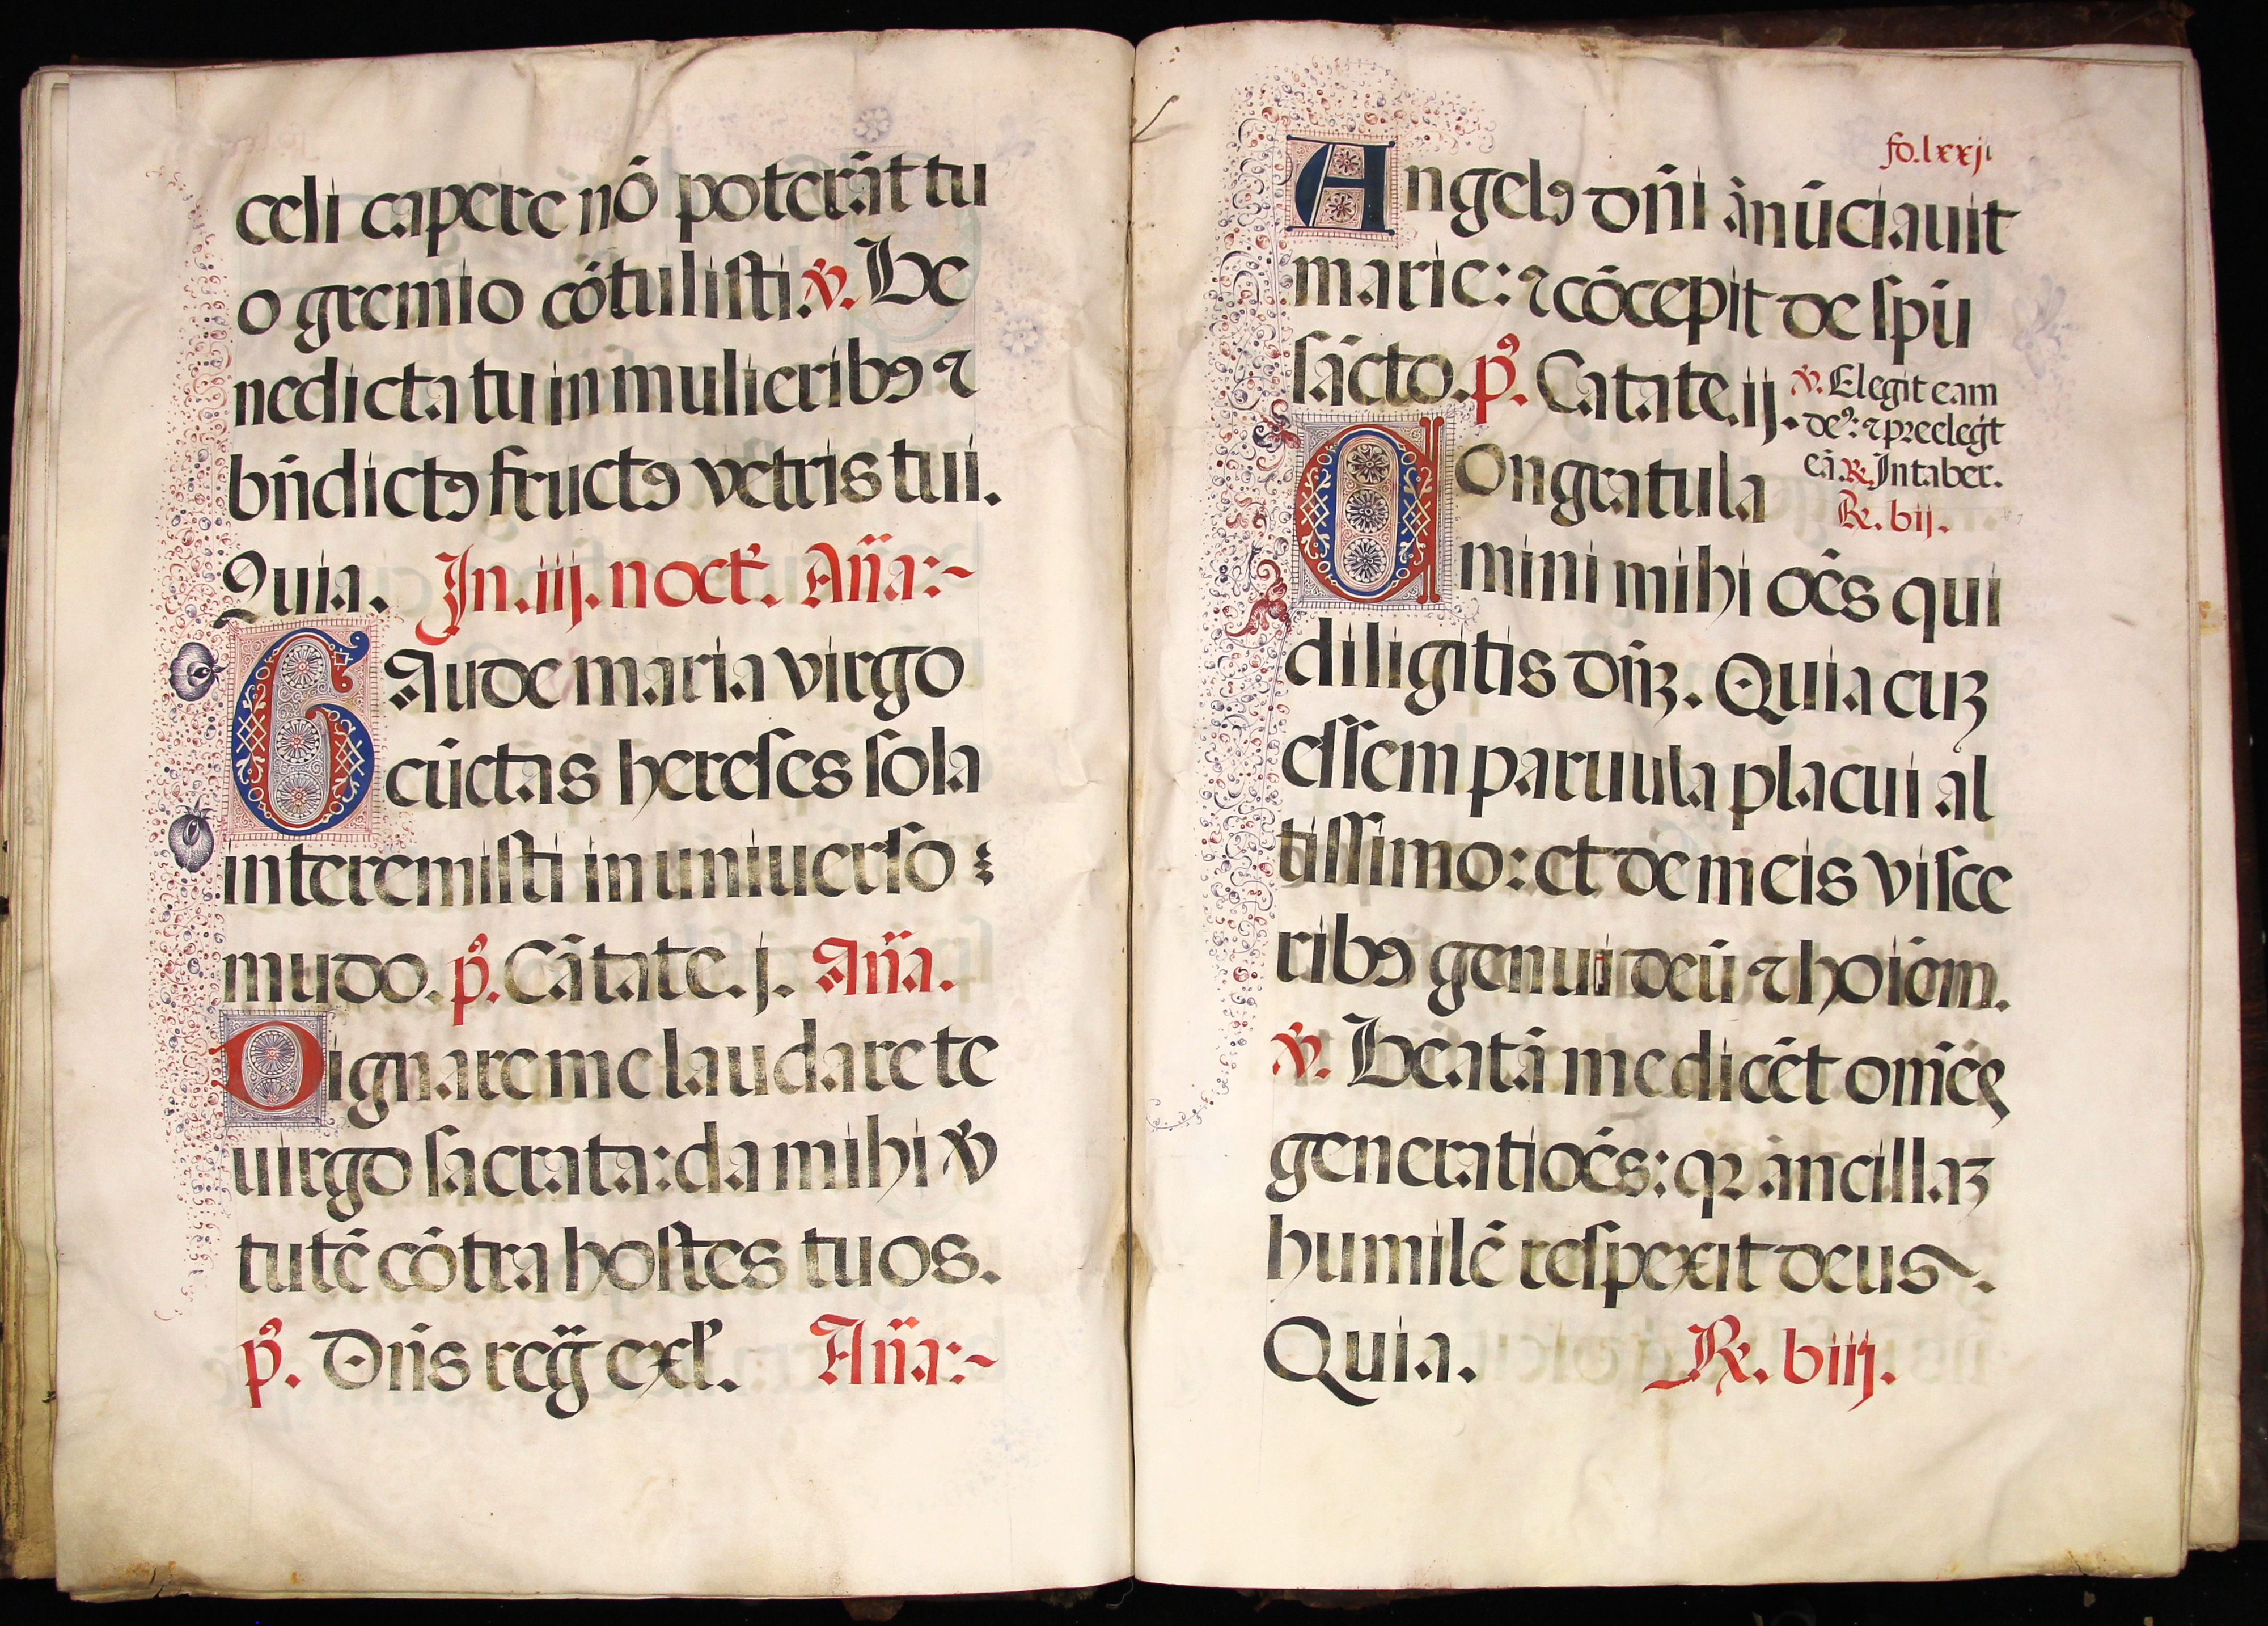 celi capere nō poterāt tu
o gremio cōtulisti. ℣. Be
nedicta tu in mulieribꝯ ⁊
bn̄dictꝯ fructꝯ vētris tui.
Quia. In .iij. noct̄. An̄a:~
Gaude maria virgo
cūctas hereses sola
interemisti in uniuerso
mūdo. p̄s. Cātate. j. An̄a.
Dignare me laudare te
uirgo sacrata: da mihi v̄
tutē cōtra hostes tuos.
p̄s. Dn̄s reḡ exl̄t. An̄a:~
fo. lxxj
Angelꝯ dn̄i ānūciauit
marie: ⁊ cōcepit de sp̄u
sācto. p̄s. Cātate. ij. ℣. Elegit eam
deꝰ: ⁊ preelegit
eā. ℟. In taber.
℟. vij.
Congratula
mini mihi oēs qui
diligitis dn̄ꝫ. Quia cuꝫ
essem paruula placui al
tissimo: et de meis visce
ribꝯ genui deū ⁊ hoīem.
℣. Beatā me dicēt omēs
generatiōes: qꝛ ancillaꝫ
humilē respexit deus.
Quia. ℟. viij.